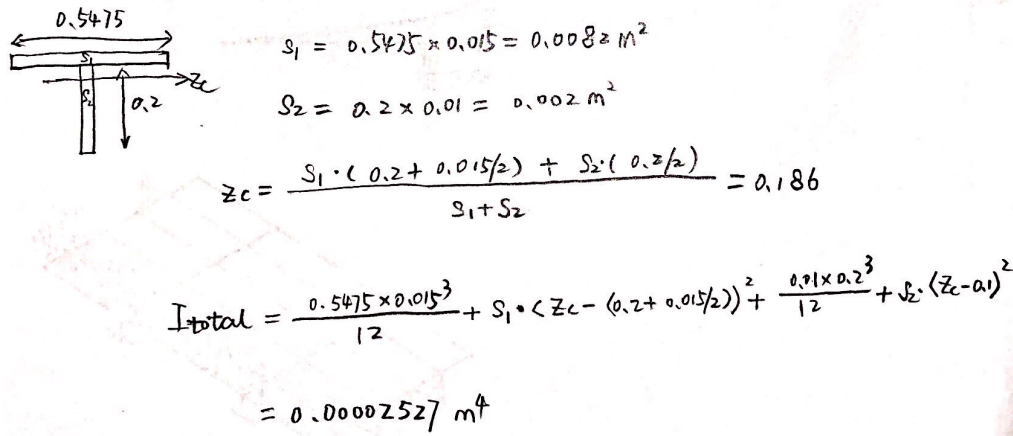 0.5475
S₁
S₂
Zc
0.2
S₁ = 0.5475 × 0.015 = 0.0082 m²
S₂ = 0.2 × 0.01 = 0.002 m²
Zc = (S₁·(0.2 + 0.015/2) + S₂·(0.2/2)) / (S₁+S₂) = 0.186
Itotal = (0.5475 × 0.015³)/12 + S₁·(Zc - (0.2 + 0.015/2))² + (0.01 × 0.2³)/12 + S₂·(Zc-0.1)²
= 0.00002527 m⁴